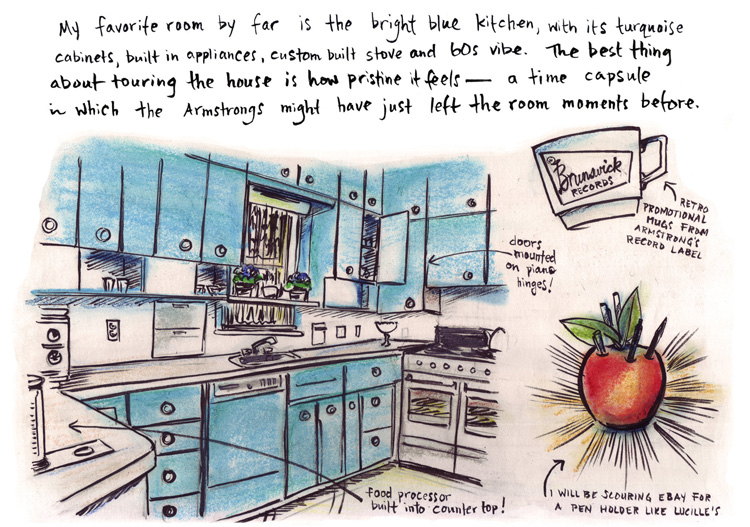 My favorite room by far is the bright blue kitchen, with its turquoise
cabinets, built in appliances, custom built stove and 60s vibe. The best thing
about touring the house is how pristine it feels — a time capsule
in which the Armstrongs might have just left the room moments before.
Brunswick
RECORDS
RETRO
PROMOTIONAL
MUGS FROM
ARMSTRONG'S
RECORD LABEL
doors
mounted
on piano
hinges!
food processor
built into counter top!
I WILL BE SCOURING EBAY FOR
A PEN HOLDER LIKE LUCILLE'S